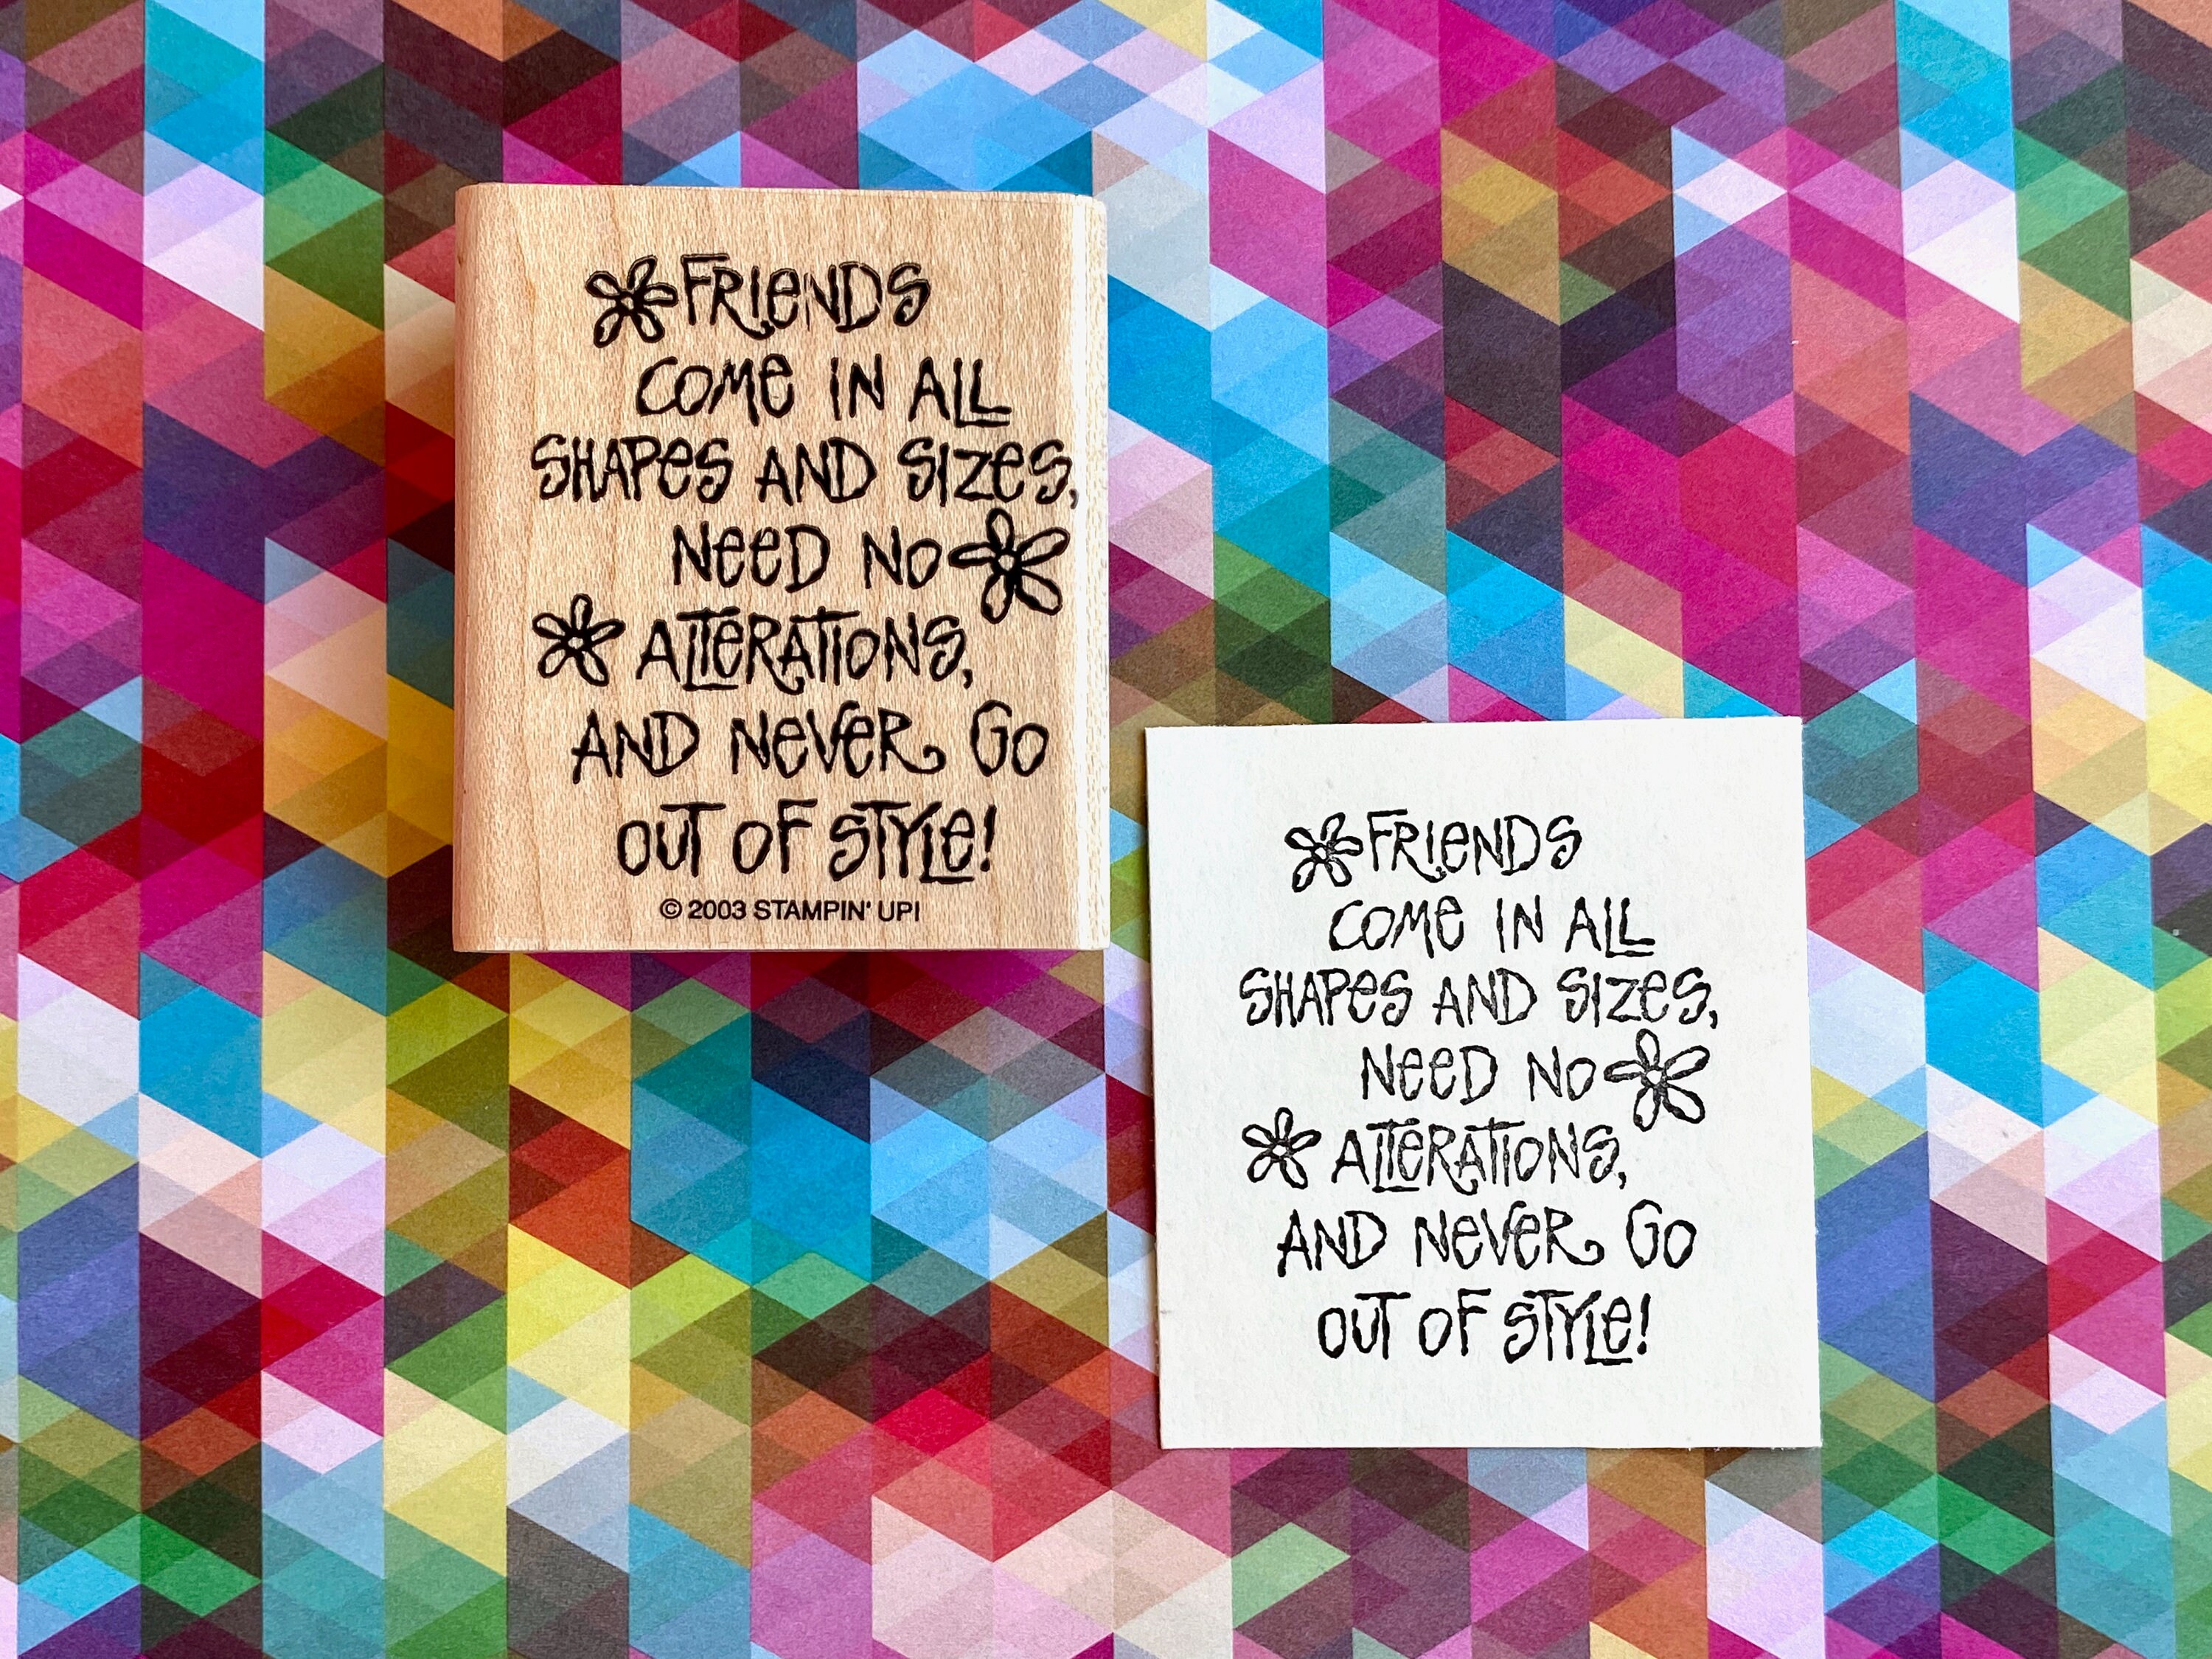 FRIENDS
COME IN ALL
SHAPES AND SIZES,
NEED NO
ALTERATIONS,
AND NEVER GO
OUT OF STYLE!
© 2003 STAMPIN' UP!
FRIENDS
COME IN ALL
SHAPES AND SIZES,
NEED NO
ALTERATIONS,
AND NEVER GO
OUT OF STYLE!